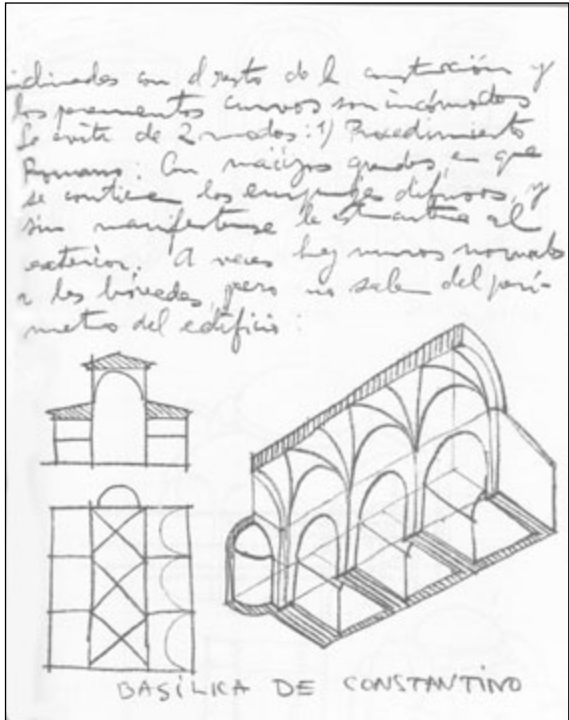 inclinados con el resto de la construcción y
los paramentos curvos son incómodos
Se evita de 2 modos: 1) Procedimiento
Romano: Con macizos grandes, en que
se contienen los empujes difusos, y
sin manifestarse la estructura al
exterior. A veces hay muros normales
a las bóvedas, pero no salen del perí-
metro del edificio:
BASÍLICA DE CONSTANTINO